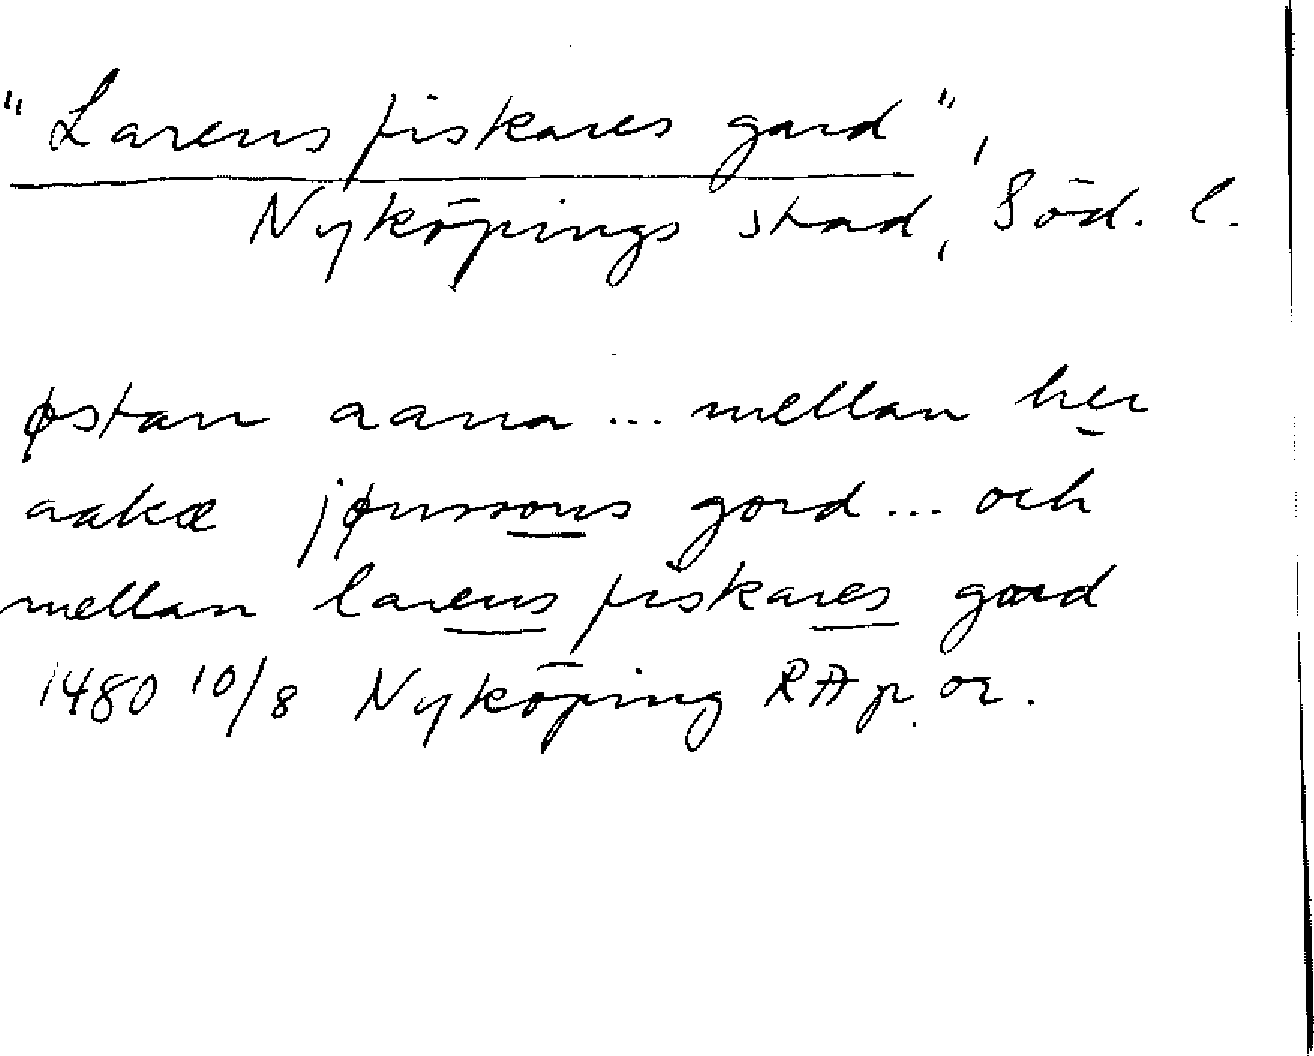 "Larens fiskares gard",
Nyköpings stad, Söd. l.
østan aana ... mellan her
aakæ jønssons gord ... och
mellan larens fiskares gard
1480 10/8 Nyköping RA p. or.